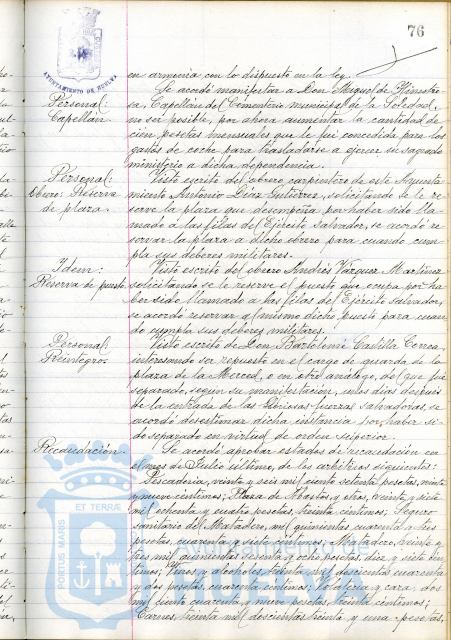 76
AYUNTAMIENTO DE HUELVA
en armonía con lo dispuesto en la ley.
Personal:
Capellán.
Se acordó manifestar a Don Miguel de
sa, Capellán del Cementerio municipal de la Soledad,
no ser posible, por ahora aumentar la cantidad de
cien pesetas mensuales que le fué concedida para los
gastos de coche para trasladarse a ejercer su sagrado
ministerio a dicha dependencia.
Personal:
Obrero: Reserva
de plaza.
Visto escrito del obrero carpintero de este Ayunta-
miento Antonio Díaz Gutiérrez, solicitando se le re-
serve la plaza que desempeña por haber sido lla-
mado a las filas del Ejército Salvador, se acordó re-
servar la plaza a dicho obrero para cuando cum-
pla sus deberes militares.
Idem:
Reserva de puesto
Visto escrito del obrero Andrés Vázquez Martínez
solicitando se le reserve el puesto que ocupa por ha-
ber sido llamado a las filas del Ejército Salvador,
se acordó reservar al mismo dicho puesto para cuan-
do cumpla sus deberes militares.
Personal
Reintegro.
Visto escrito de Don Bartolomé Correa,
interesando ser repuesto en el cargo de guarda de la
plaza de la Merced, o en otro análogo, de que fué
separado, según su manifestación, unos días después
de la entrada de las gloriosas fuerzas salvadoras, se
acordó desestimar dicha instancia por haber si-
do separado en virtud de orden superior.
Recaudación.
Se acordó aprobar estados de recaudación en
el mes de Julio último, de los arbitrios siguientes:
Pescadería, veinte y seis mil ciento setenta pesetas, veinte
y nueve céntimos; Plaza de Abastos y otros, veinte y siete
mil ochenta y cuatro pesetas, treinta céntimos; Seguro
sanitario del Matadero, mil quinientas cuarenta y tres
pesetas, cuarenta y siete céntimos; Matadero, veinte y
tres mil sesenta y ocho pesetas, diez y siete cén-
timos; Vinos y alcoholes, treinta mil doscientas cuarenta
y dos pesetas, cuarenta céntimos; Volatería y caza, dos
mil ciento cuarenta y nueve pesetas, treinta céntimos;
Carnes, treinta mil doscientas treinta y una pesetas,
PORTUS MARIS
ET TERRAE
HUELVA